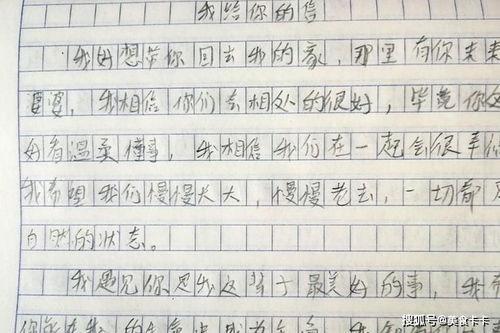 我给你的信
我好想带你回去我的家，那里有你未来
婆婆，我相信你们会相处的很好，毕竟你
好看温柔懂事，我相信我们在一起会很幸
我希望我们慢慢长大，慢慢老去，一切都
自然的状态。
我遇见你是我这辈子最美好的事，我
搜狐号@美食卡卡